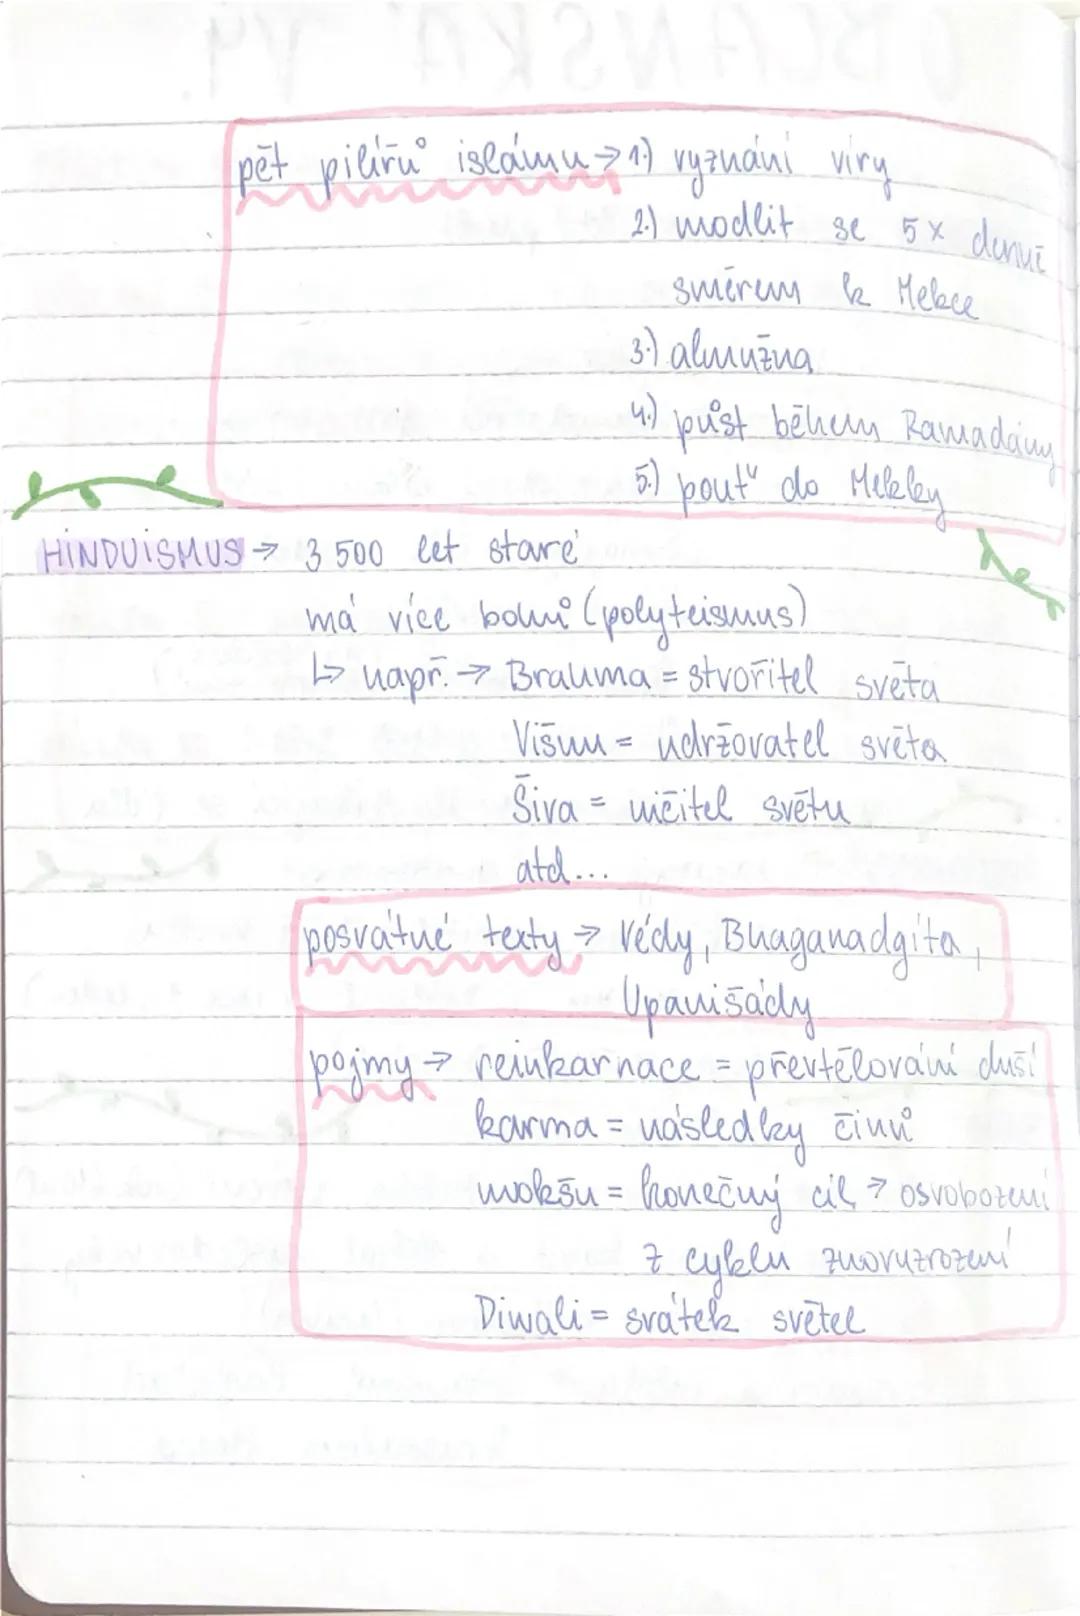 pět pilířů islámu → 1.) vyznání víry
2.) modlit se 5x denně
směrem k Mekce
3.) almužna
4.) půst během Ramadány
5.) pouť do Mekky
HINDUISMUS → 3 500 let staré
má více bohů (polyteismus)
↳ např. → Brahma = stvořitel světa
Višnu = udržovatel světa
Šiva = ničitel světu
atd...
posvátné texty → Védy, Bhaganadgíta,
Upanišády
pojmy → reinkarnace = převtělování duší
karma = následky činů
mokšu = konečný cíl → osvobození
z cyklu znovuzrození
Diwali = svátek světel